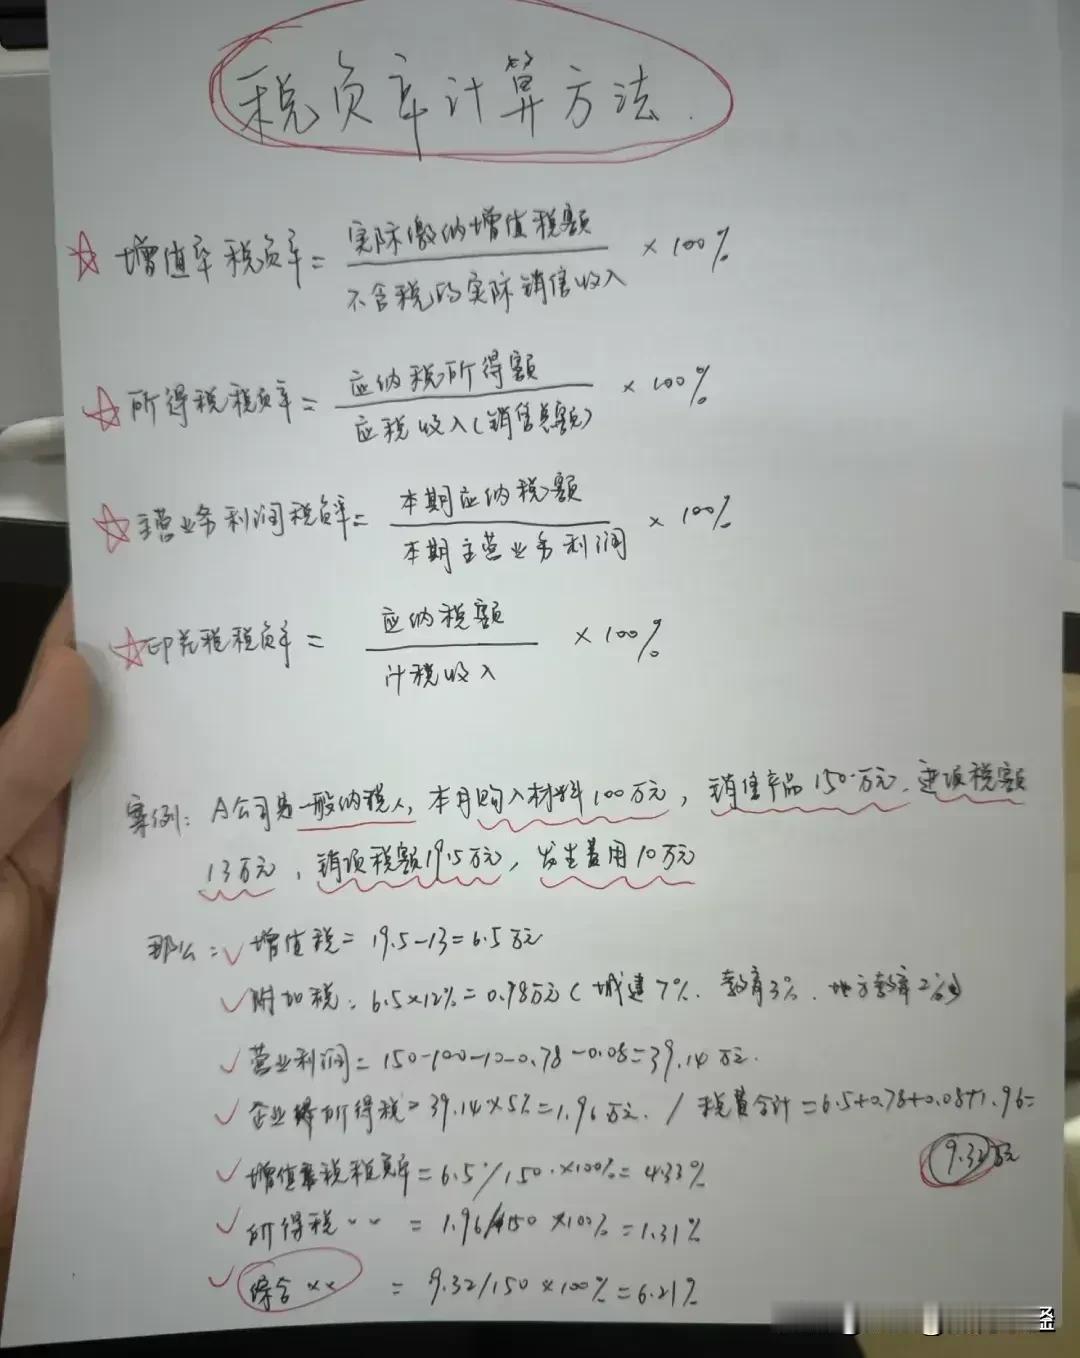 税负率计算方法.
☆ 增值率税负率 = 实际缴纳增值税额 / 不含税的实际销售收入 × 100%
☆ 所得税税负率 = 应纳税所得额 / 应税收入(销售总额) × 100%
☆ 主营业务利润税负率 = 本期应纳税额 / 本期主营业务利润 × 100%
☆ 印花税税负率 = 应纳税额 / 计税收入 × 100%
案例: A公司是一般纳税人, 本月购入材料100万元, 销售产品150万元, 进项税额
13万元, 销项税额19.5万元, 发生费用10万元
那么: ✓ 增值税 = 19.5-13=6.5万元
✓ 附加税: 6.5×12%=0.78万元( 城建7%、教育3%、地方教育2%)
✓ 营业利润=150-100-10-0.78-0.08=39.14万元.
✓ 企业所得税=39.14×5%=1.96万元. / 税费合计=6.5+0.78+0.08+1.96=
9.32万元
✓ 增值税税负率=6.5/150×100%=4.33%
✓ 所得税 〃 〃 = 1.96/150×100%=1.31%
✓ 综合 〃 〃 = 9.32/150×100%=6.21%